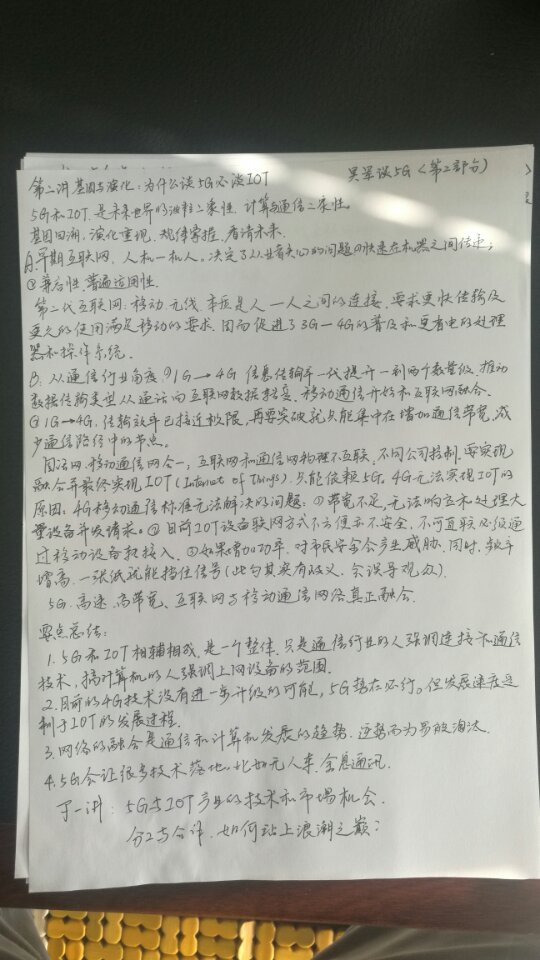 吴军谈5G〈第二部分〉
第二讲 基因与演化：为什么谈5G必谈IOT
5G和IOT，是未来世界的波粒二象性，计算与通信二象性。
基因回溯，演化重现，规律掌握，看清未来.
A.早期互联网，人机一机人。决定了从业者关心的问题①快速在机器之间传递；
②兼容性、普遍适用性.
第二代互联网：移动、无线，本质是人一人之间的连接，要求更快传输及
更久的使用满足移动的要求，因而促进了3G—4G的普及和更省电的处理
器和操作系统.
B.从通信行业角度，①1G→4G 信息传输率一代提升一到两个数量级，推动
数据传输类型从通话向互联网数据转变，移动通信开始和互联网融合.
②1G→4G，传输效率已接近极限，再要突破就只能集中在增加通信带宽，减
少通信路径中的节点。
固话网、移动通信网合一，互联网和通信网物理不互联，不同公司控制，要实现
融合并最终实现IOT(Internet of Things)，只能依赖5G。4G无法实现IOT的
原因：4G移动通信标准无法解决的问题：①带宽不足，无法响应和处理大
量设备并发请求。②目前IOT设备联网方式不方便亦不安全，不可直联必须通
过移动设备教接入.③如果增加功率，对市民安全会产生威胁，同时，频率
增高，一张纸就能挡住信号(此句其实有歧义，会误导观众).
5G，高速、高带宽、互联网与移动通信网络真正融合.
要点总结：
1.5G和IOT相辅相成，是一个整体，只是通信行业的人强调连接和通信
技术，搞计算机的人强调上网设备的范围.
2.目前的4G技术没有进一步升级的可能，5G势在必行。但发展速度受
制于IOT的发展过程.
3.网络的融合是通信和计算机发展的趋势，逆势而为易被淘汰.
4.5G会让很多技术落地，比如无人车，全息通讯.
下一讲：5G与IOT产业的技术和市场机会.
分工与合作，如何站上浪潮之巅？